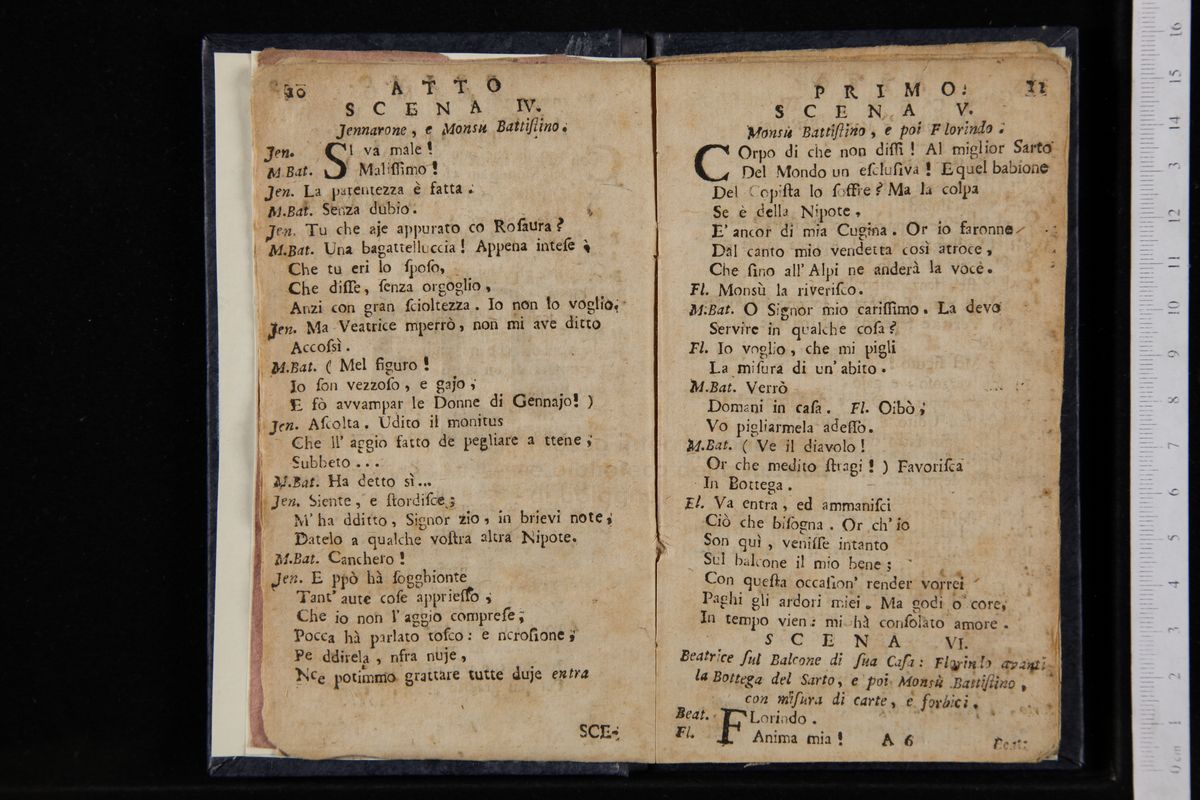 10 ATTO
SCENA IV.
Jennarone, e Monsu Battiſtino.
Jen. SI va male!
M.Bat. Maliſſimo!
Jen. La parentezza è fatta.
M.Bat. Senza dubio.
Jen. Tu che aje appurato co Roſaura?
M.Bat. Una bagattelluccia! Appena inteſe
Che tu eri lo ſpoſo,
Che diſſe, ſenza orgoglio,
Anzi con gran ſcioltezza. Io non lo voglio.
Jen. Ma Veatrice mperrò, non mi ave ditto
Accoſsì.
M.Bat. ( Mel figuro!
Io ſon vezzoſo, e gajo,
E fò avvampar le Donne di Gennajo! )
Jen. Aſcolta. Udito il monitus
Che ll' aggio fatto de pegliare a ttene,
Subbeto...
M.Bat. Ha detto sì...
Jen. Siente, e ſtordiſce;
M' ha dditto, Signor zio, in brievi note,
Datelo a qualche voſtra altra Nipote.
M.Bat. Canchero!
Jen. E ppò hà ſogghionte
Tant' aute coſe apprieſſo,
Che io non l' aggio compreſe;
Pocca hà parlato toſco: e ncroſione,
Pe ddirela, nfra nuje,
Nce potimmo grattare tutte duje entra
SCE-
PRIMO. 11
SCENA V.
Monsù Battiſtino, e poi Florindo.
COrpo di che non diſſi! Al miglior Sarto
Del Mondo un eſcluſiva! E quel babione
Del Copiſta lo ſoffre? Ma la colpa
Se è della Nipote,
E' ancor di mia Cugina. Or io faronne
Dal canto mio vendetta così atroce,
Che ſino all' Alpi ne anderà la voce.
Fl. Monsù la riveriſco.
M.Bat. O Signor mio cariſſimo. La devo
Servire in qualche coſa?
Fl. Io voglio, che mi pigli
La miſura di un' abito.
M.Bat. Verrò
Domani in caſa. Fl. Oibò;
Vo pigliarmela adeſſo.
M.Bat. ( Ve il diavolo!
Or che medito ſtragi! ) Favoriſca
In Bottega.
Fl. Va entra, ed ammaniſci
Ciò che biſogna. Or ch' io
Son quì, veniſſe intanto
Sul balcone il mio bene;
Con queſta occaſion' render vorrei
Paghi gli ardori miei. Ma godi o core,
In tempo vien: mi hà conſolato amore.
SCENA VI.
Beatrice ſul Balcone di ſua Caſa: Florindo avanti
la Bottega del Sarto, e poi Monsù Battiſtino,
con miſura di carte, e forbici.
Beat. FLorindo.
Fl. Anima mia! A 6 Beat.